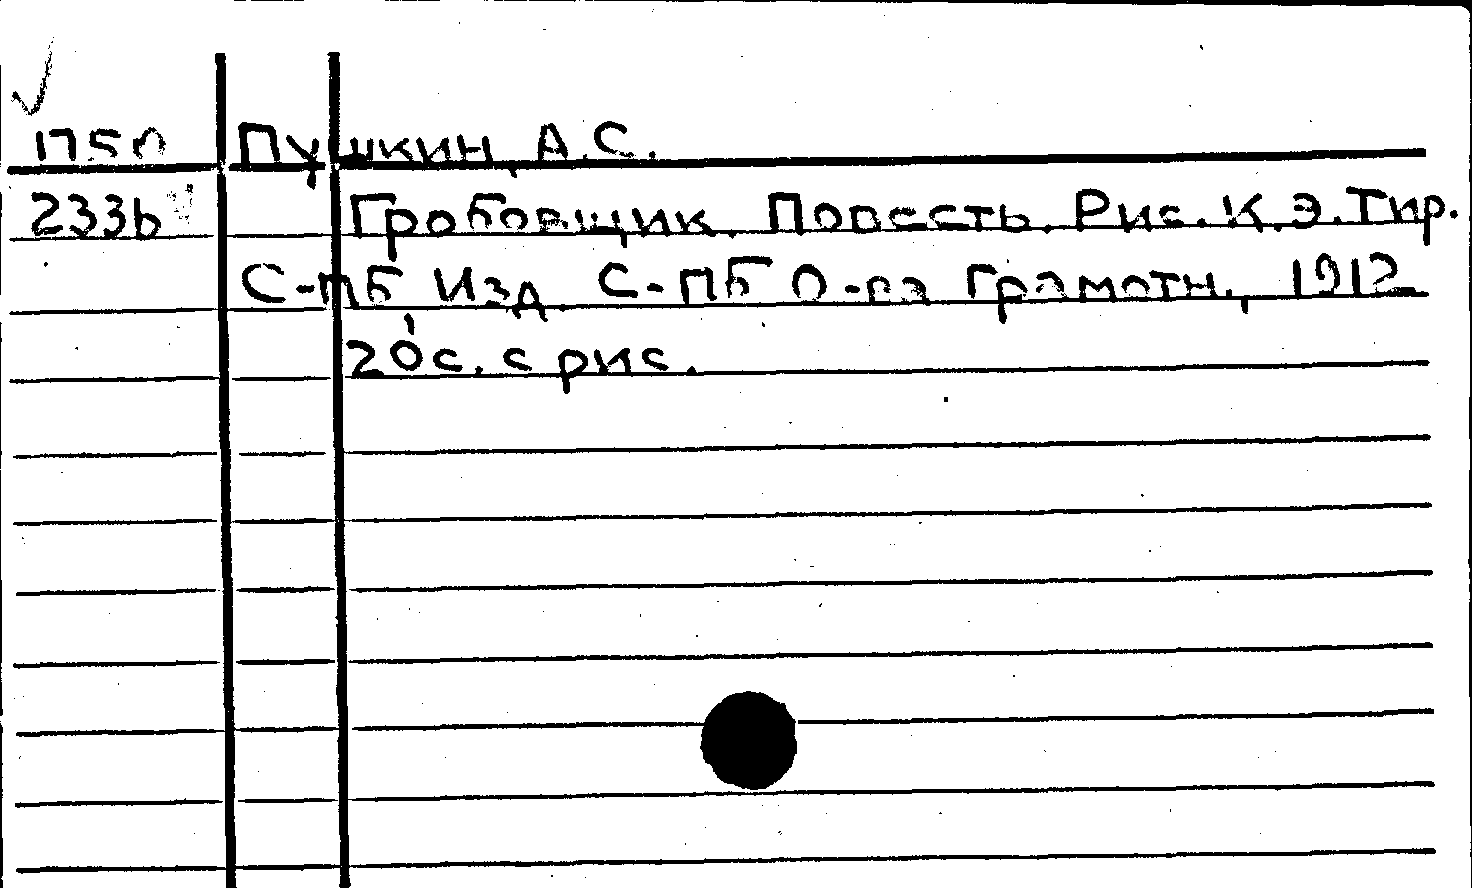 1750 Пушкин, А.С.
233b Гробовщик. Повесть. Рис. К.Э. Тир.
С-пб Изд. С-ПБ О-ва Грамотн., 1912
20 с. с рис.